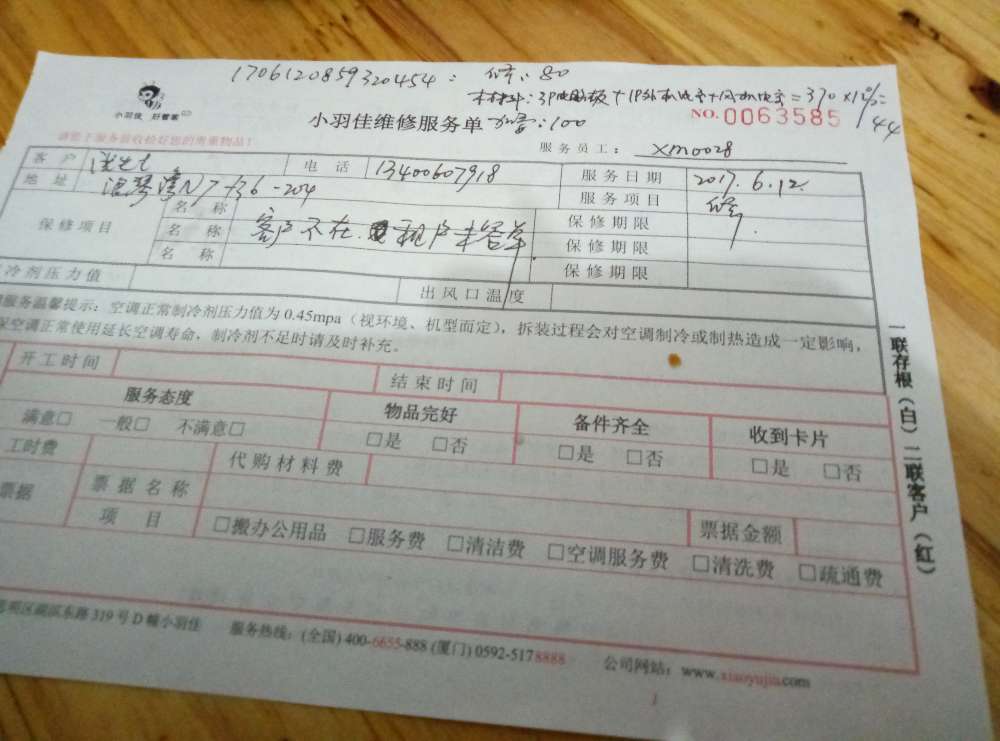 1706120859320454: 修:80
材料:3P电脑板+1P外机电容+风机电容=370×12%=44
小羽佳 好管家
小羽佳维修服务单 :100
NO.0063585
请您于服务前收检好您的贵重物品!
服务员工: xm0028
客户 电话 13400607918 服务日期 2017.6.12.
地址 N7-136-204 服务项目 修
保修项目 名称 保修期限
名称 客户不在 租户未签单 保修期限
名称 保修期限
冷剂压力值 出风口温度
服务温馨提示:空调正常制冷剂压力值为0.45mpa(视环境、机型而定),拆装过程会对空调制冷或制热造成一定影响,
保空调正常使用延长空调寿命,制冷剂不足时请及时补充。
开工时间 结束时间
服务态度 物品完好 备件齐全 收到卡片
满意□ 一般□ 不满意□ □是 □否 □是 □否 □是 □否
工时费 代购材料费
票据 票据名称 票据金额
项目 □搬办公用品 □服务费 □清洁费 □空调服务费 □清洗费 □疏通费
一联存根(白)二联客户(红)
明区湖滨东路319号D幢小羽佳 服务热线:(全国)400-6655-888 (厦门)0592-5178888 公司网站:www.xiaoyujia.com